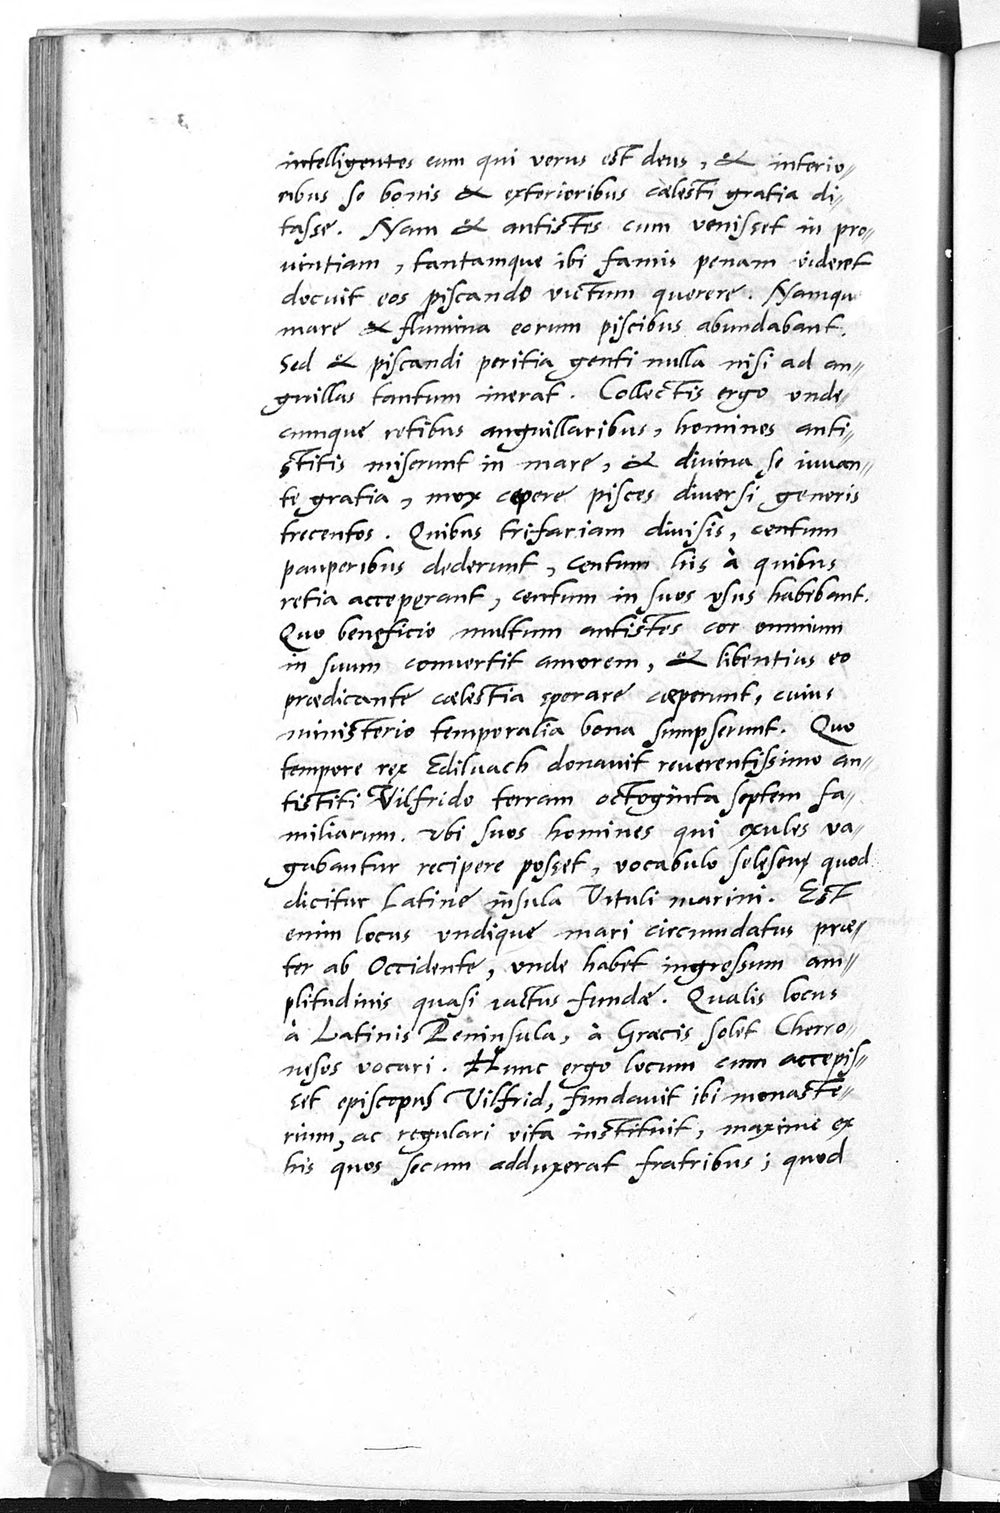 intelligentes eum qui verus est deus, & interio〃
ribus se bonis & exterioribus cælesti gratia di〃
tasse. Nam & antistes cum venisset in pro〃
vintiam, tantamque ibi famis penam videret
docuit eos piscando victum querere. Namqu
mare & flumina eorum piscibus abundabant.
Sed & piscandi peritia genti nulla nisi ad an〃
guillas tantum inerat. Collectis ergo unde〃
cumque retibus anguillaribus, homines anti〃
stitis miserunt in mare, & divina se iuvan〃
te gratia, mox cepere pisces diversi generis
trecentos. Quibus trifariam divisis, centum
pauperibus dederunt, centum his à quibus
retia acceperant, centum in suos usus habebant.
Quo beneficio multum antistes cor omnium
in suum convertit amorem, & libentius eo
prædicante cælestia sperare cæperunt, cuius
ministerio temporalia bona sumpserunt. Quo
tempore rex Edilvach donavit reverentissimo an〃
tistiti Vilfrido terram octoginta septem fa〃
miliarum. Ubi suos homines qui exules va〃
gabantur recipere posset, vocabulo seleseux quod
dicitur Latine insula Vituli marini. Est
enim locus undique mari circumdatus præ〃
ter ab Occidente, unde habet ingressum am〃
plitudinis quasi iactus fundæ. Qualis locus
à Latinis Peninsula, à Græcis solet Cherro〃
nesos vocari. Hunc ergo locum cum accepis〃
set episcopus Vilfrid, fundavit ibi monaste〃
rium, ac regulari vita instituit, maxime ex
his quos secum adduxerat fratribus; quod